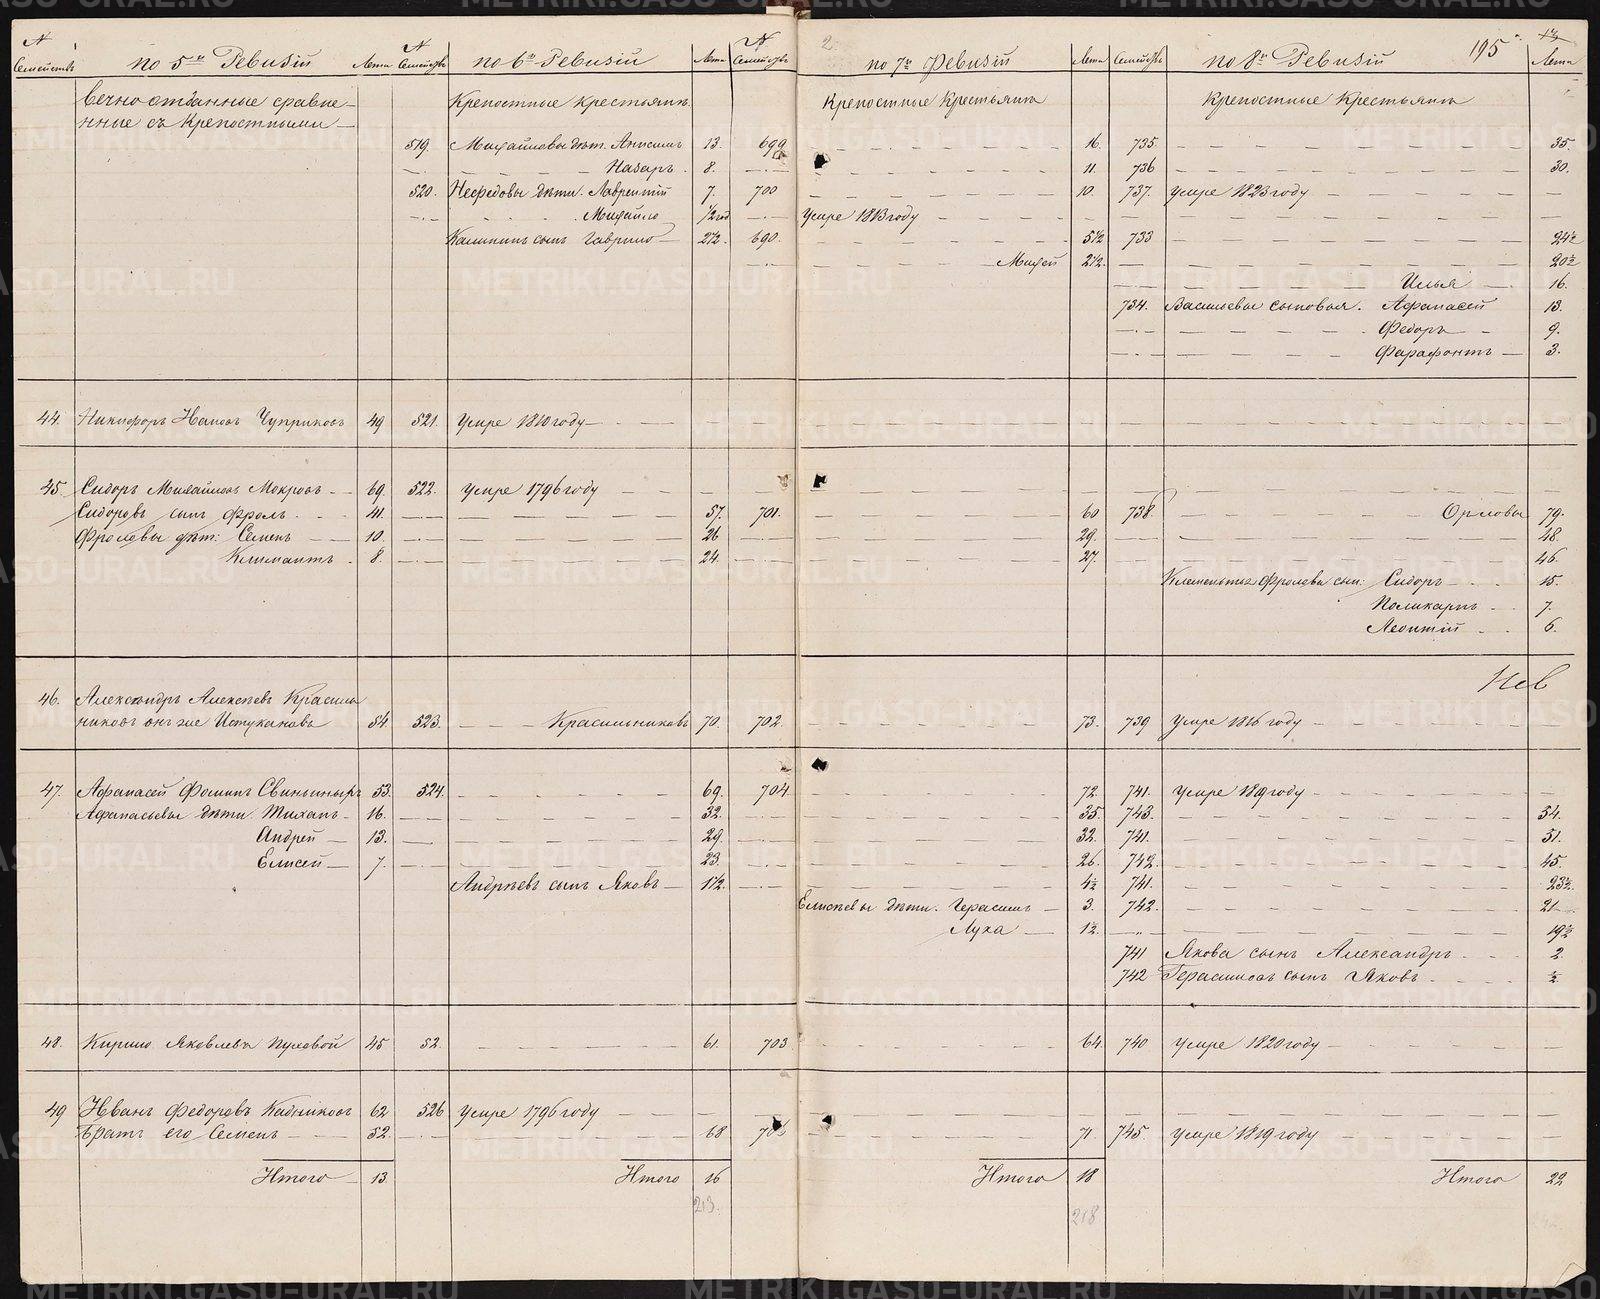 2. 195
№ Семействъ по 5й Ревизіи Лета № Семействъ по 6й Ревизіи Лета № Семействъ по 7й Ревизіи Лета Семействъ по 8й Ревизіи Лета
Вечноотданные сравне- Крепостные крестьяня Крепостные Крестьяня Крепостные Крестьяня
нные съ Крепостными
519. Михайловы дѣт. Анисимъ 13. 699 16. 735. 35.
Назаръ 8. 11. 736 30.
520. Нефедовы дѣти. Лаврентий 7. 700 10. 737. Умре 1823 году
Михайло 1/2 год Умре 1813 году
Калининъ сынъ Гаврило 2 1/2. 690. 5 1/2 733 24 1/2
Михей 2 1/2. 20 1/2
Илья 16.
734. Васильевы сыновья. Афанасей 13.
Федоръ 9.
Фарафонтъ 3.
44. Никифоръ Ивановъ Чуприковъ 49 521. Умре 1810 году
45. Сидоръ Михайловъ Мокровъ 69. 522. Умре 1796 году
Сидоровъ сынъ Фролъ 41. 57. 701. 60 738. Орловы 79.
Фроловы дѣт: Семенъ 10. 26 29. 48.
Климантъ 8. 24. 27. 46.
Клементья Фролова сын: Сидоръ 15.
Поликарпъ 7.
Леонтій 6.
46. Александръ Алексѣевъ Красиль
никовъ онъ же Истукановъ 54. 523. Красильниковъ 70. 702. 73. 739 Умре 1816 году
47. Афанасей Фоминъ Свиньинырь 53. 524. 69. 704 72. 741. Умре 1819 году
Афанасьевы дѣти. Тиханъ 16. 32. 35. 743. 54.
Андрей 13. 29. 32. 741. 51.
Елисей 7. 23. 26. 742. 45.
Андреевъ сынъ Яковъ 1 1/2. 4 1/2 741. 23 1/2
Елисѣевы дѣти. Герасимъ 3. 742. 21
Лука 1 1/2. 19 1/2
741 Якова сынъ Александръ 2.
742 Герасимовъ сынъ Яковъ 1/2
48. Кирило Яковлевъ Пуховой 45 52. 61. 703 64. 740 Умре 1820 году
49 Иванъ Федоровъ Кадниковъ 62 526 Умре 1796 году
Братъ его Семенъ 52. 68 71. 745. Умре 1819 году
Итого 13 Итого 16 Итого 18 Итого 22
213. 218
METRIKI.GASO-URAL.RU